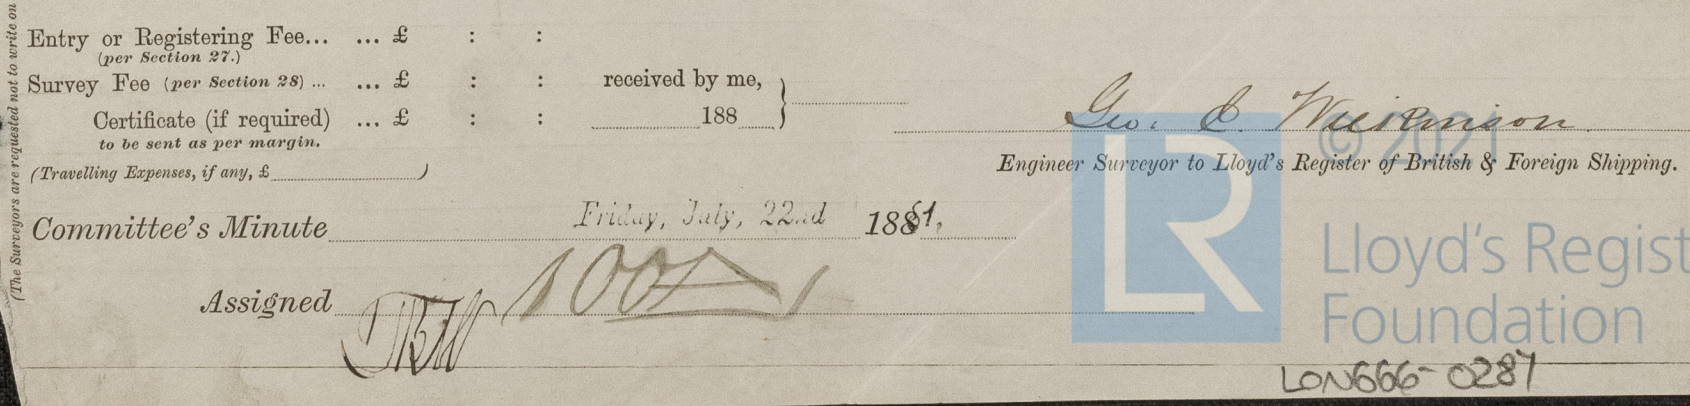 (The Surveyors are requested not to write on
Entry or Registering Fee... ... £ : :
(per Section 27.)
Survey Fee (per Section 28) ... ... £ : : received by me,
Certificate (if required) ... £ : : 188
to be sent as per margin.
(Travelling Expenses, if any, £ )
Geo. C. Wilkinson.
Engineer Surveyor to Lloyd's Register of British & Foreign Shipping.
Committee's Minute Friday, July, 22nd 1881,
Assigned 100A1
© 2021
LR
Lloyd's Regist
Foundation
LON666-0287